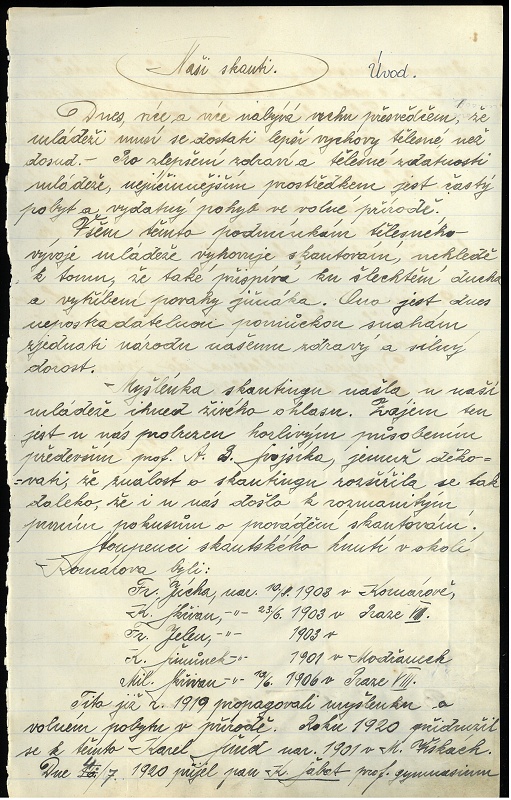 Naši skauti.
Úvod.
Dnes, více a více nabývá vrchu přesvědčení, že
mládeži musí se dostati lepší výchovy tělesné než
dosud. – Ku zlepšení zdraví a tělesné zdatnosti
mládeže, nejúčinnějším prostředkem jest častý
pobyt a vydatný pohyb ve volné přírodě.
Všem těmto podmínkám tělesného
vývoje mládeže vyhovuje skautování, nehledě
k tomu, že také přispívá ku šlechtění ducha
a vytříbení povahy jinocha. Ono jest dnes
nepostradatelnou pomůckou snahám
zjednati národu našemu zdravý a silný
dorost.
– Myšlénka skautingu našla u naší
mládeže ihned živého ohlasu. Zájem ten
jest u nás probuzen horlivým působením
především prof. A. B. Svojsíka, jemuž děko-
vati, že znalost o skautingu rozšířila se tak
daleko, že i u nás došlo k rozmanitým
prvním pokusům o provádění skautování.
Stoupenci skautského hnutí v okolí
Komárova byli:
Fr. Zícha, nar. 1903 v Komárově,
K. Skřivan, -"- 23/6. 1903 v Praze VIII.
Fr. Jelen, -"- 1903 v
K. -"- 1901 v Modřanech
Mil. Skřivan -"- 1906 v Praze VIII.
Tito již r. 1919 propagovali myšlenku o
volném pobytu v přírodě. Roku 1920 přidružil
se k těmto Karel nar. 1901 v M. Vískách.
Dne /7. 1920 přijel pan K. Šábat prof. gymnasium